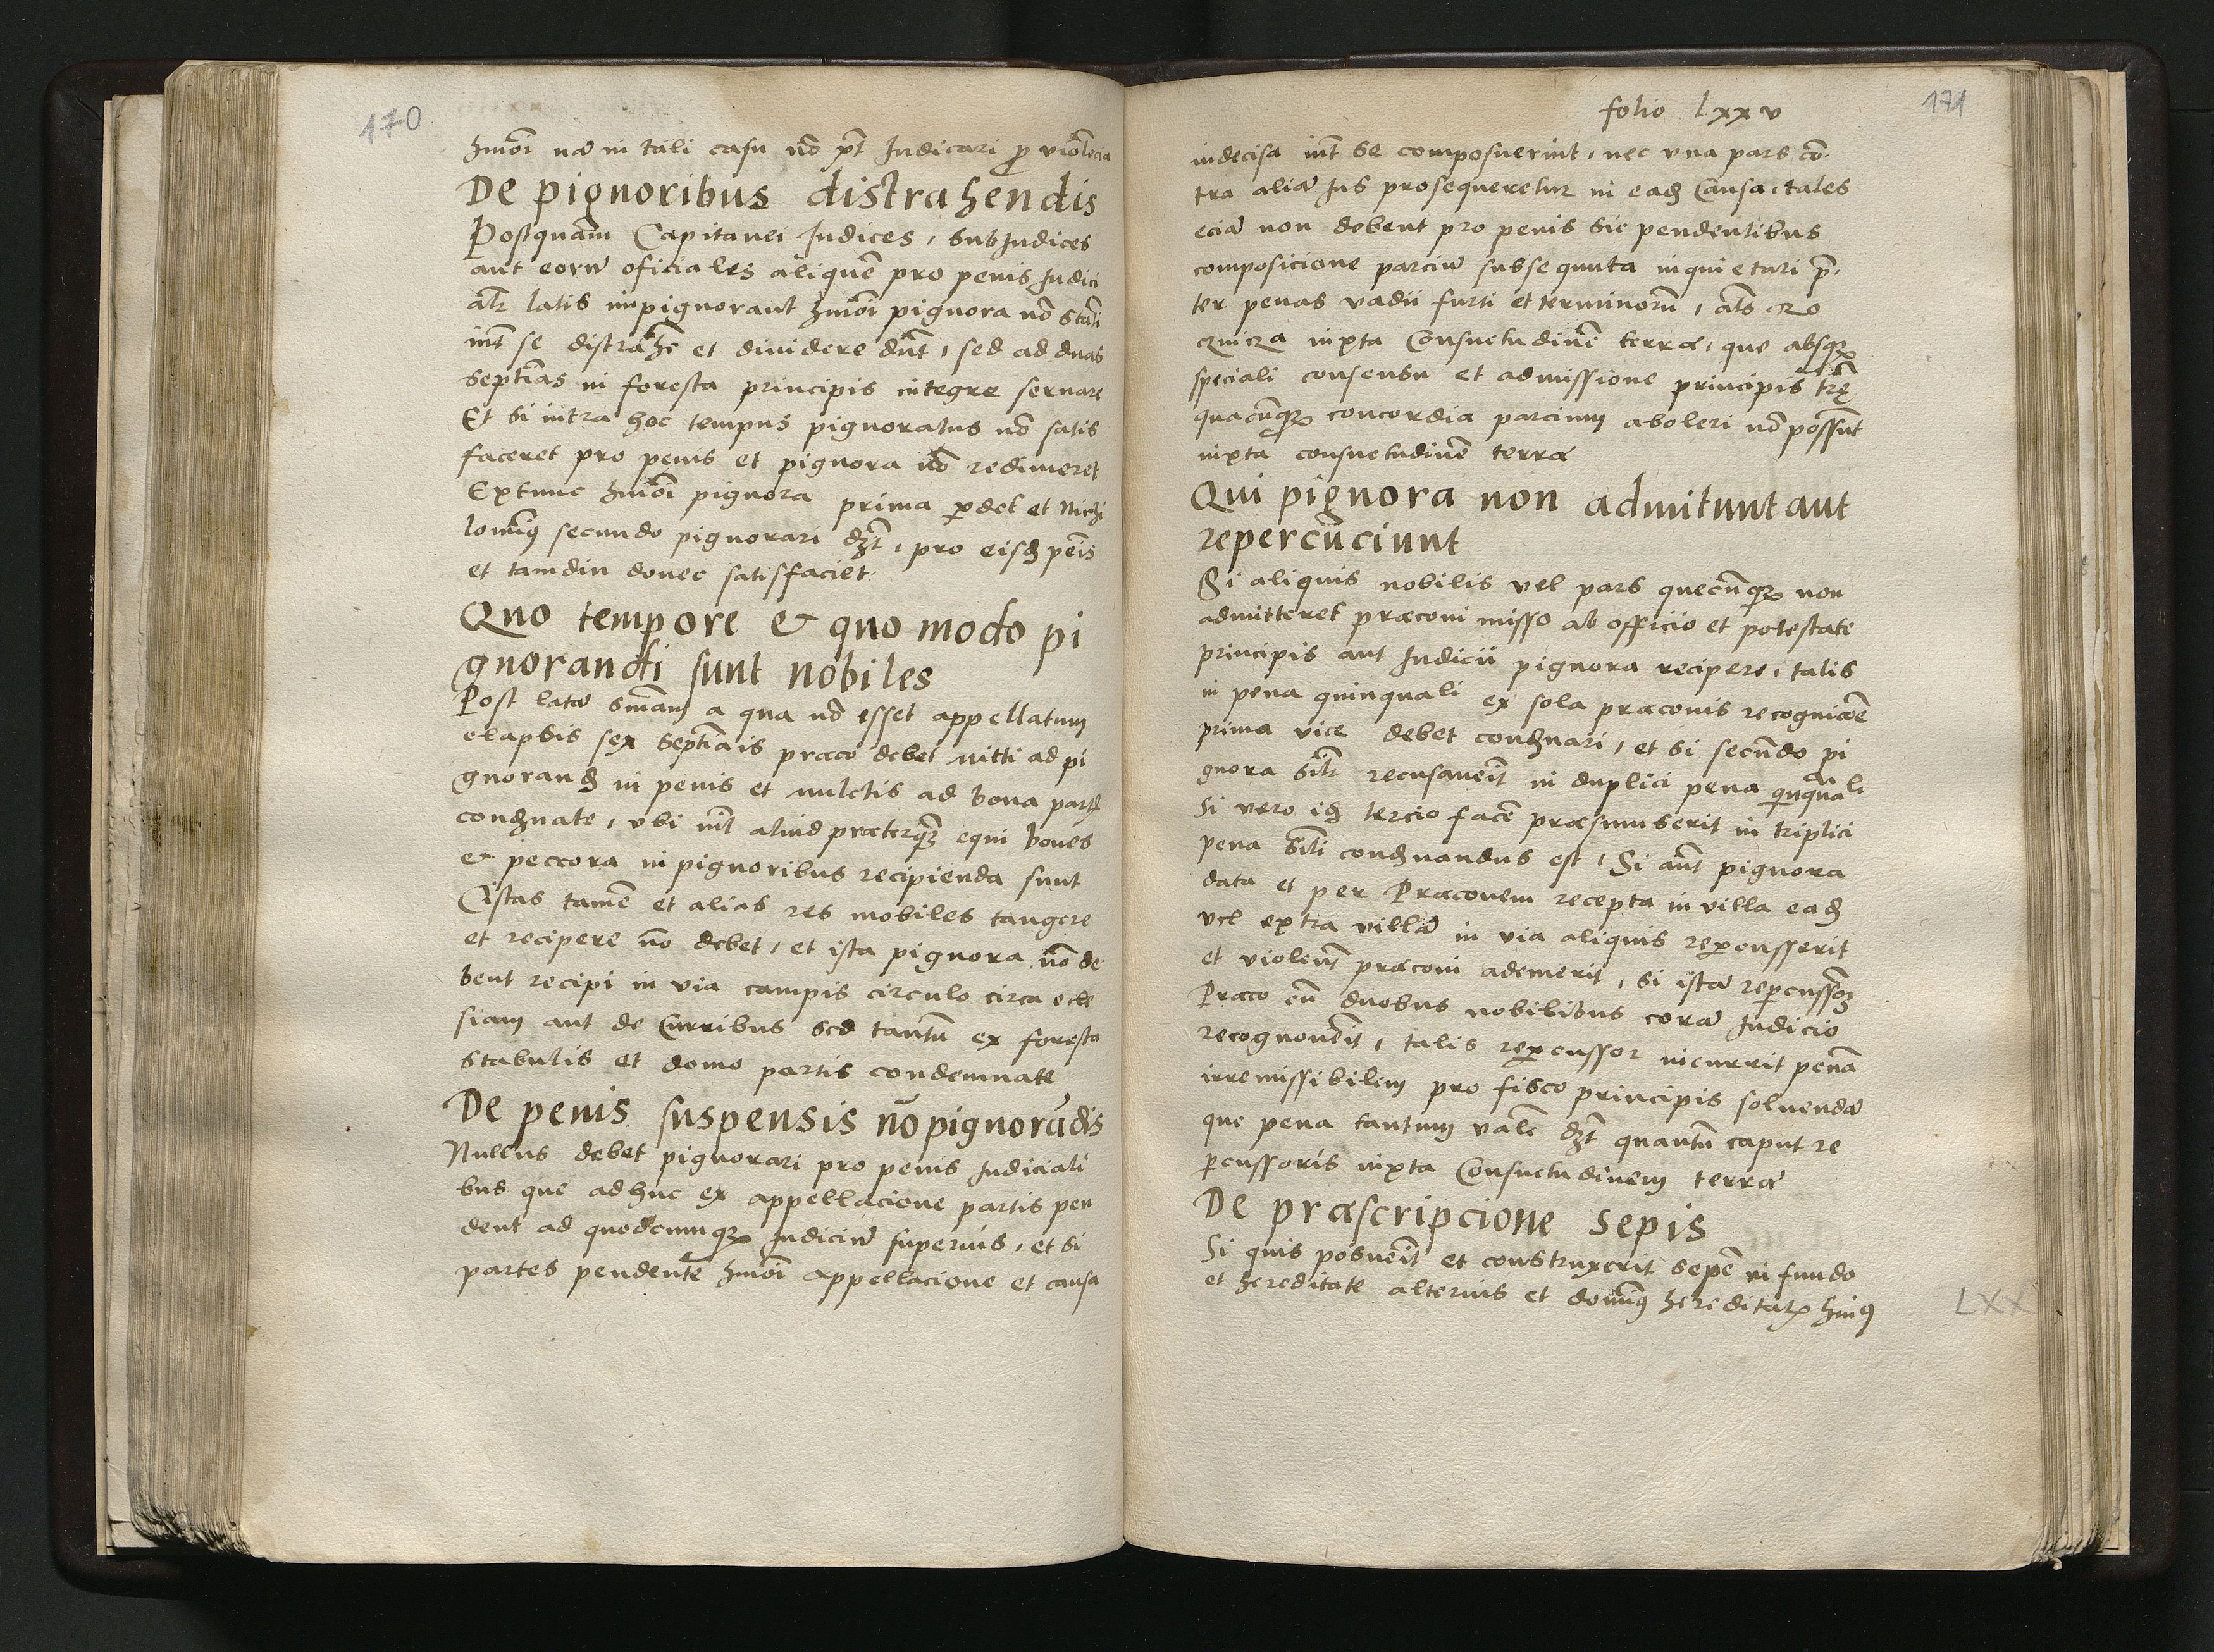 170
hmōi nā in tali casu nō pt Iudicari p violēcia
De pignoribus distrahendis
Postquam Capitanei Iudices, SubIudices
aut eorū oficiales aliquē pro penis Iudici
alr latis inpignorant hmōi pignora nō stāti
int se distrahē et dividere dnt, sed ad duas
septīas in foresta principis integre servare
Et si intra hoc tempus pignoratus nō satis
faceret pro penis et pignora nō redimeret
Extunc hmōi pignora prima pdet et Nichi
lomīꝯ secundo pignorari dȝt, pro eisdȝ penis
et tamdiu donec satisfaciet
Quo tempore & quo modo pi
gnorandi sunt nobiles
Post latā snīam a qua nō esset appellatum
elapsis sex septīais præco debet mitti ad pi
gnorandȝ in penis et mulctis ad bona partȝ
condȝnate, ubi nīl aliud præterqȝ equi boves
& peccora in pignoribus recipienda sunt
Cistas tamē et alias res mobiles tangere
et recipere nō debet, et ista pignora nō de
bent recipi in via campis circulo circa ecle
siam aut de Curribus sed tantū ex foresta
stabulis et domo partis condemnate
De penis suspensis nō pignorādis
Nullus debet pignorari pro penis Iudiciali
bus que adhuc ex appellacione partis pen
dent ad quodcumqȝ Iudiciū superius, et si
partes pendente hmōi appellacione et causa
folio lxxv
171
indecisa int se composuerint, nec una pars cō
tra aliā Ius prosequeretur in eadȝ Causa, tales
eciā non debent pro penis sic pendentibus
composicione parciū subsequuta inquietari p̄
ter penas vadii furti et terminorū, als Ro
cznicza iuxta Consuetudinē terræ, que absqȝ
speciali consensu et admissione principis trę
quacūqȝ concordia parcium aboleri nō possunt
iuxta consuetudinē terræ
Qui pignora non admitunt aut
repercūciunt
Si aliquis nobilis vel pars quecūqȝ non
admitteret præconi misso ab officio et potestate
principis aut Iudicii pignora recipere, talis
in pena quinquali ex sola præconis recognicōē
prima vice debet condȝnari, et si secūdo pi
gnora silr recusaverit in duplici pena qinquali
Si vero idȝ tercio facē præsumserit in triplici
pena sili condȝnandus est, Si aūt pignora
data et per Præconem recepta in villa eadȝ
vel extra villā in via aliquis repcusserit
et violent præconi ademerit, si istā repcussȝ
Præco cū duobus nobilibus corā Iudicio
recognoverit, talis repcussor incurrit penā
irremissibilem pro fisco principis solvendā
que pena tantum valē dȝt quantū caput re
pcussoris iuxta Consuetudinem terræ
De præscripcione sepis
Si quis posuerit et construxerit sepē in fundo
et hereditate alterius et domīꝯ hereditatȝ huiꝯ
LXX